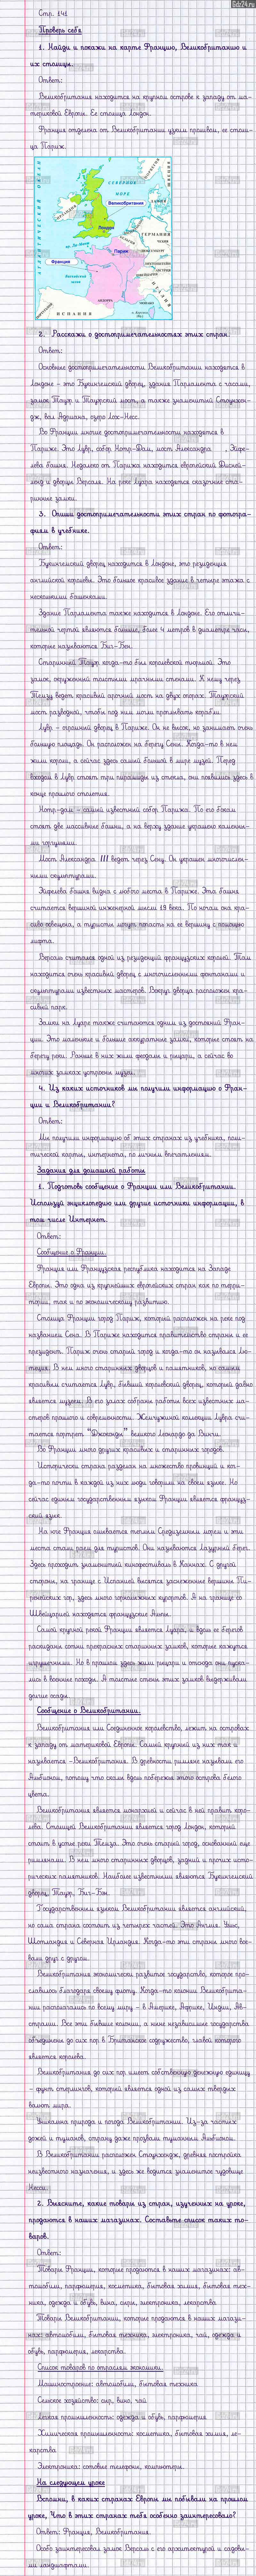 Gdz24.ru
Стр. 141
Проверь себя
1. Найди и покажи на карте Францию, Великобританию и
их столицы.
Ответ:
Великобритания находится на крупном острове к западу от ма-
териковой Европы. Ее столица Лондон.
Франция отделена от Великобритании узким проливом, ее столи-
ца Париж.
СЕВЕРНОЕ
МОРЕ
Великобритания
Лондон
ГЕРМАНИЯ
Париж
Франция
ИСПАНИЯ
2. Расскажи о достопримечательностях этих стран.
Ответ:
Основные достопримечательности Великобритании находятся в
Лондоне - это Букингемский дворец, здание Парламента с часами,
замок Тауэр и Тауэрский мост, а также знаменитый Стоунхен-
дж, вал Адриана, озеро Лох-Несс.
Во Франции многие достопримечательности находятся в
Париже. Это Лувр, собор Нотр-Дам, мост Александра , Эйфе-
лева башня. Недалеко от Парижа находится европейский Дисней-
ленд и дворец Версаль. На реке Луара находятся сказочные ста-
ринные замки.
3. Опиши достопримечательности этих стран по фотогра-
фиям в учебнике.
Ответ:
Букингемский дворец находится в Лондоне, это резиденция
английской королевы. Это большое красивое здание в четыре этажа с
несколькими башенками.
Здание Парламента также находится в Лондоне. Его отличи-
тельной чертой являются большие, более 4 метров в диаметре часы,
которые называются Биг-Бен.
Старинный Тауэр когда-то был королевской тюрьмой. Это
замок, окруженный толстыми мрачными стенами. К нему через
Темзу ведет красивый арочный мост на двух опорах. Тауэрский
мост разводной, чтобы под ним могли проплывать корабли.
Лувр - огромный дворец в Париже. Он не высок, но занимает очень
большую площадь. Он расположен на берегу Сены. Когда-то в нем
жили короли, а сейчас здесь самый большой в мире музей. Перед
входом в Лувр стоят три пирамиды из стекла, они появились здесь в
конце прошлого столетия.
Нотр-дам - самый известный собор Парижа. По его бокам
стоят две массивные башни, а на верху здание украшено каменны-
ми горгульями.
Мост Александра III ведет через Сену. Он украшен многочислен-
ными скульптурами.
Эйфелева башня видна с любого места в Париже. Эта башня
считается вершиной инженерной мысли 19 века. По ночам она кра-
сиво освещена, а туристы могут попасть на ее вершину с помощью
лифта.
Версаль считался одной из резиденций французских королей. Там
находится очень красивый дворец с многочисленными фонтанами и
скульптурами известных мастеров. Вокруг дворца расположен кра-
сивый парк.
Замки на Луаре также считаются одним из достояний Фран-
ции. Это маленькие и большие аккуратные замки, которые стоят на
берегу реки. Раньше в них жили феодалы и рыцари, а сейчас во
многих замках устроены музеи.
4. Из каких источников мы получили информацию о Фран-
ции и Великобритании?
Ответ:
Мы получили информацию об этих странах из учебника, поли-
тической карты, интернета, по личным впечатлениям.
Задания для домашней работы
1. Подготовь сообщение о Франции или Великобритании.
Используй энциклопедию или другие источники информации, в
том числе Интернет.
Ответ:
Сообщение о Франции.
Франция или Французская республика находится на Западе
Европы. Это одна из крупнейших европейских стран как по терри-
тории, так и по экономическому развитию.
Столица Франции город Париж, который расположен на реке под
названием Сена. В Париже находится правительство страны и ее
президент. Париж очень старый город и когда-то он назывался Лю-
теция. В нем много старинных дворцов и памятников, но самым
красивым считается Лувр, бывший королевский дворец, который давно
является музеем. В его залах собраны работы всех известных ма-
стеров прошлого и современности. Жемчужиной коллекции Лувра счи-
тается портрет "Джоконды" великого Леонардо да Винчи.
Во Франции много других красивых и старинных городов.
Исторически страна разделена на множество провинций и ког-
да-то почти в каждой из них люди говорили на своем языке. Но
сейчас единым государственным языком Франции является француз-
ский язык.
На юге Франция омывается теплым Средиземным морем и эти
места стали раем для туристов. Они называются Лазурный берег.
Здесь проходит знаменитый кинофестиваль в Каннах. С другой
стороны, на границе с Испанией высятся заснеженные вершины Пи-
ренейских гор, здесь много горнолыжных курортов. А на границе со
Швейцарией находятся французские Альпы.
Самой крупной рекой Франции является Луара, и вдоль ее берегов
раскиданы сотни прекрасных старинных замков, которые кажутся
игрушечными. Но в прошлом здесь жили рыцари и отсюда они пуска-
лись в военные походы. А толстые стены этих замков выдерживали
долгие осады.
Сообщение о Великобритании.
Великобритания или Соединенное королевство, лежит на островах
к западу от материковой Европы. Самый крупный из них так и
называется - Великобритания. В древности римляне называли его
Альбионом, потому что скалы вдоль побережья этого острова белого
цвета.
Великобритания является монархией и сейчас в ней правит коро-
лева. Столицей Великобритании является город Лондон, который
стоит в устье реки Темза. Это очень старый город, основанный еще
римлянами. В нем много старинных дворцов, зданий и прочих исто-
рических памятников. Наиболее известными являются Букингемский
дворец, Тауэр, Биг-Бен.
Государственным языком Великобритании является английский,
но сама страна состоит из четырех частей. Это Англия, Уэльс,
Шотландия и Северная Ирландия. Когда-то эти страны много вое-
вали друг с другом.
Великобритания экономически развитое государство, которое про-
славилось благодаря своему флоту. Когда-то колонии Великобрита-
нии располагались по всему миру - в Америке, Африке, Индии, Ав-
стралии. Все эти бывшие колонии, а ныне независимые государства
объединены до сих пор в Британское содружество, главой которого
является королева.
Великобритания до сих пор имеет собственную денежную единицу
- фунт стерлингов, который является одной из самых твердых
валют мира.
Уникальна природа и погода Великобритании. Из-за частых
дождей и туманов, страну даже прозвали туманным Альбионом.
В Великобритании расположен Стоунхендж, древняя постройка
неизвестного назначения, и здесь же водится знаменитое чудовище
Несси.
2. Выясните, какие товары из стран, изученных на уроке,
продаются в наших магазинах. Составьте список таких то-
варов.
Ответ:
Товары Франции, которые продаются в наших магазинах: ав-
томобили, парфюмерия, косметика, бытовая химия, бытовая тех-
ника, одежда и обувь, вина, сыры, электроника, лекарства.
Товары Великобритании, которые продаются в наших магази-
нах: автомобили, бытовая техника, электроника, чай, одежда и
обувь, парфюмерия, лекарства.
Список товаров по отраслям экономики.
Машиностроение: автомобили, бытовая техника
Сельское хозяйство: сыр, вино, чай
Легкая промышленность: одежда и обувь, парфюмерия
Химическая промышленность: косметика, бытовая химия, ле-
карства
Электроника: сотовые телефоны, компьютеры.
На следующем уроке
Вспомни, в каких странах Европы мы побывали на прошлом
уроке. Что в этих странах тебя особенно заинтересовало?
Ответ: Франция, Великобритания.
Особо заинтересовал замок Версаль с его архитектурой и садовы-
ми ландшафтами.